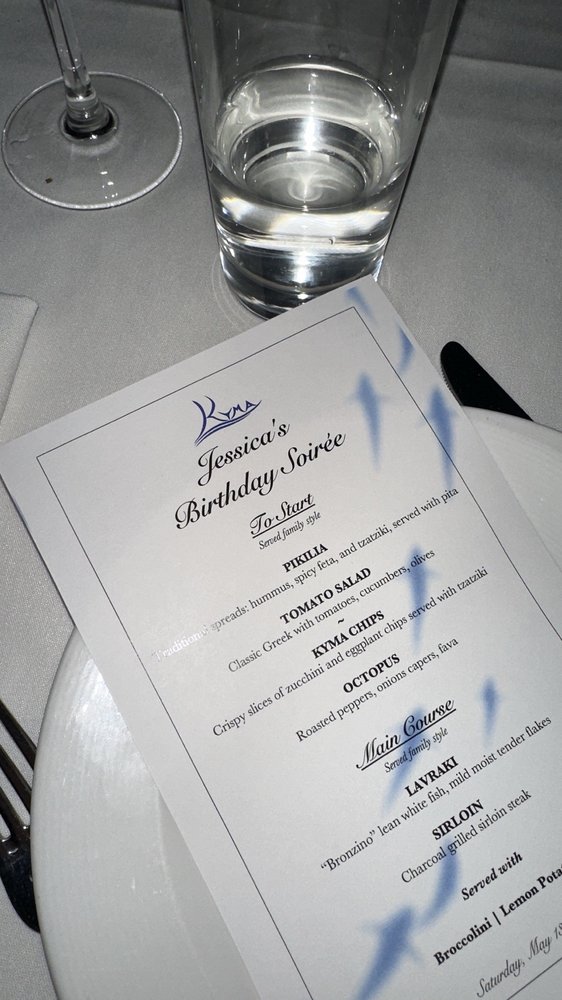 KYMA
Jessica's
Birthday Soirée
To Start
Served family style
PIKILIA
Traditional spreads: hummus, spicy feta, and tzatziki, served with pita
TOMATO SALAD
Classic Greek with tomatoes, cucumbers, olives
~
KYMA CHIPS
Crispy slices of zucchini and eggplant chips served with tzatziki
OCTOPUS
Roasted peppers, onions capers, fava
Main Course
Served family style
LAVRAKI
"Bronzino" lean white fish, mild moist tender flakes
SIRLOIN
Charcoal grilled sirloin steak
Served with
Broccolini | Lemon
Saturday, May